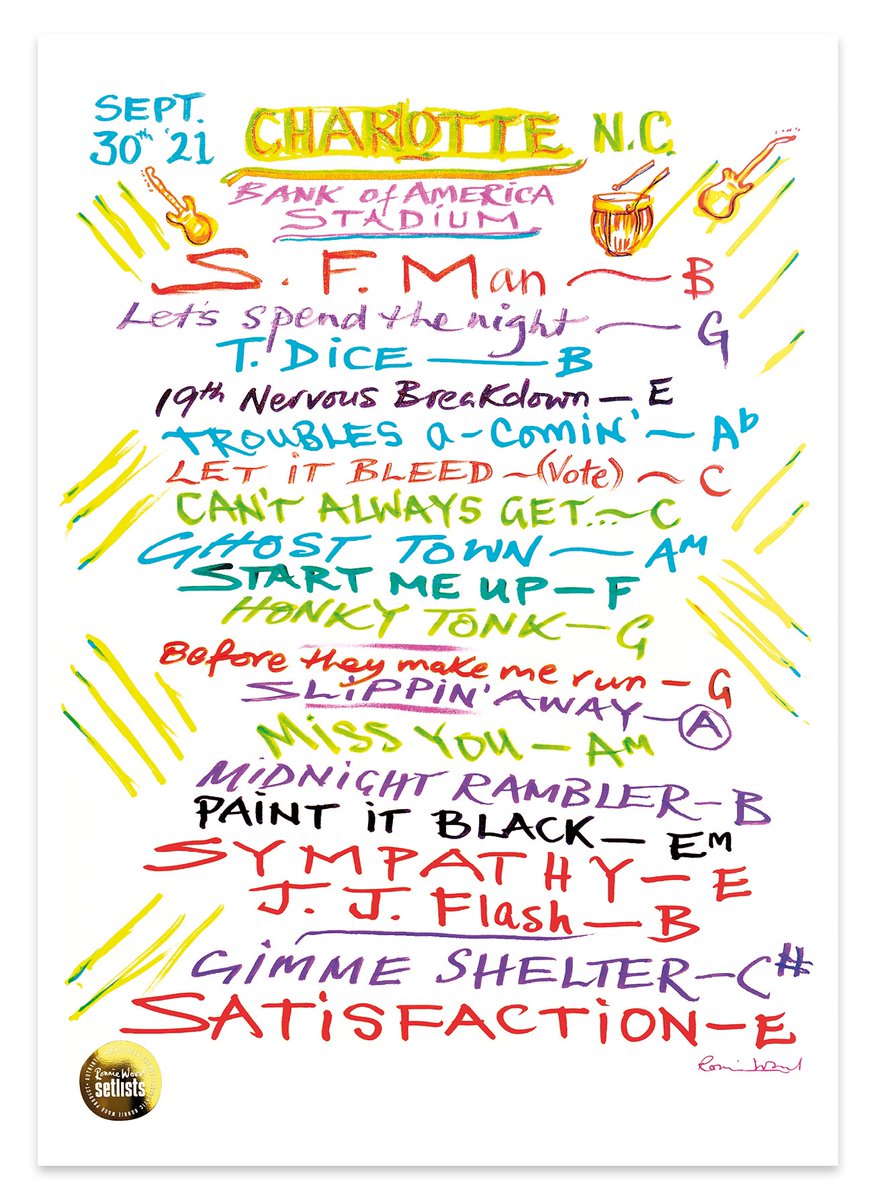 SEPT.
30th '21
CHARLOTTE N.C.
BANK of AMERICA
STADIUM
S. F. Man ~ B
Let's spend the night ~ G
T. DiCE — B
19th Nervous Breakdown — E
TROUBLES a-Comin' ~ Ab
LET iT BLEED ~ (Vote) ~ C
CAN'T ALWAYS GET... ~ C
GHOST TOWN ~ AM
START ME UP — F
HONKY TONK — G
Before they make me run — G
SLiPPiN' AWAY — A
MiSS YOU — AM
MiDNiGHT RAMBLER — B
PAiNT iT BLACK — EM
SYMPATHY — E
J. J. Flash — B
GiMME SHELTER — C#
SATiSFACTiON — E
Ronnie Wood
setlists